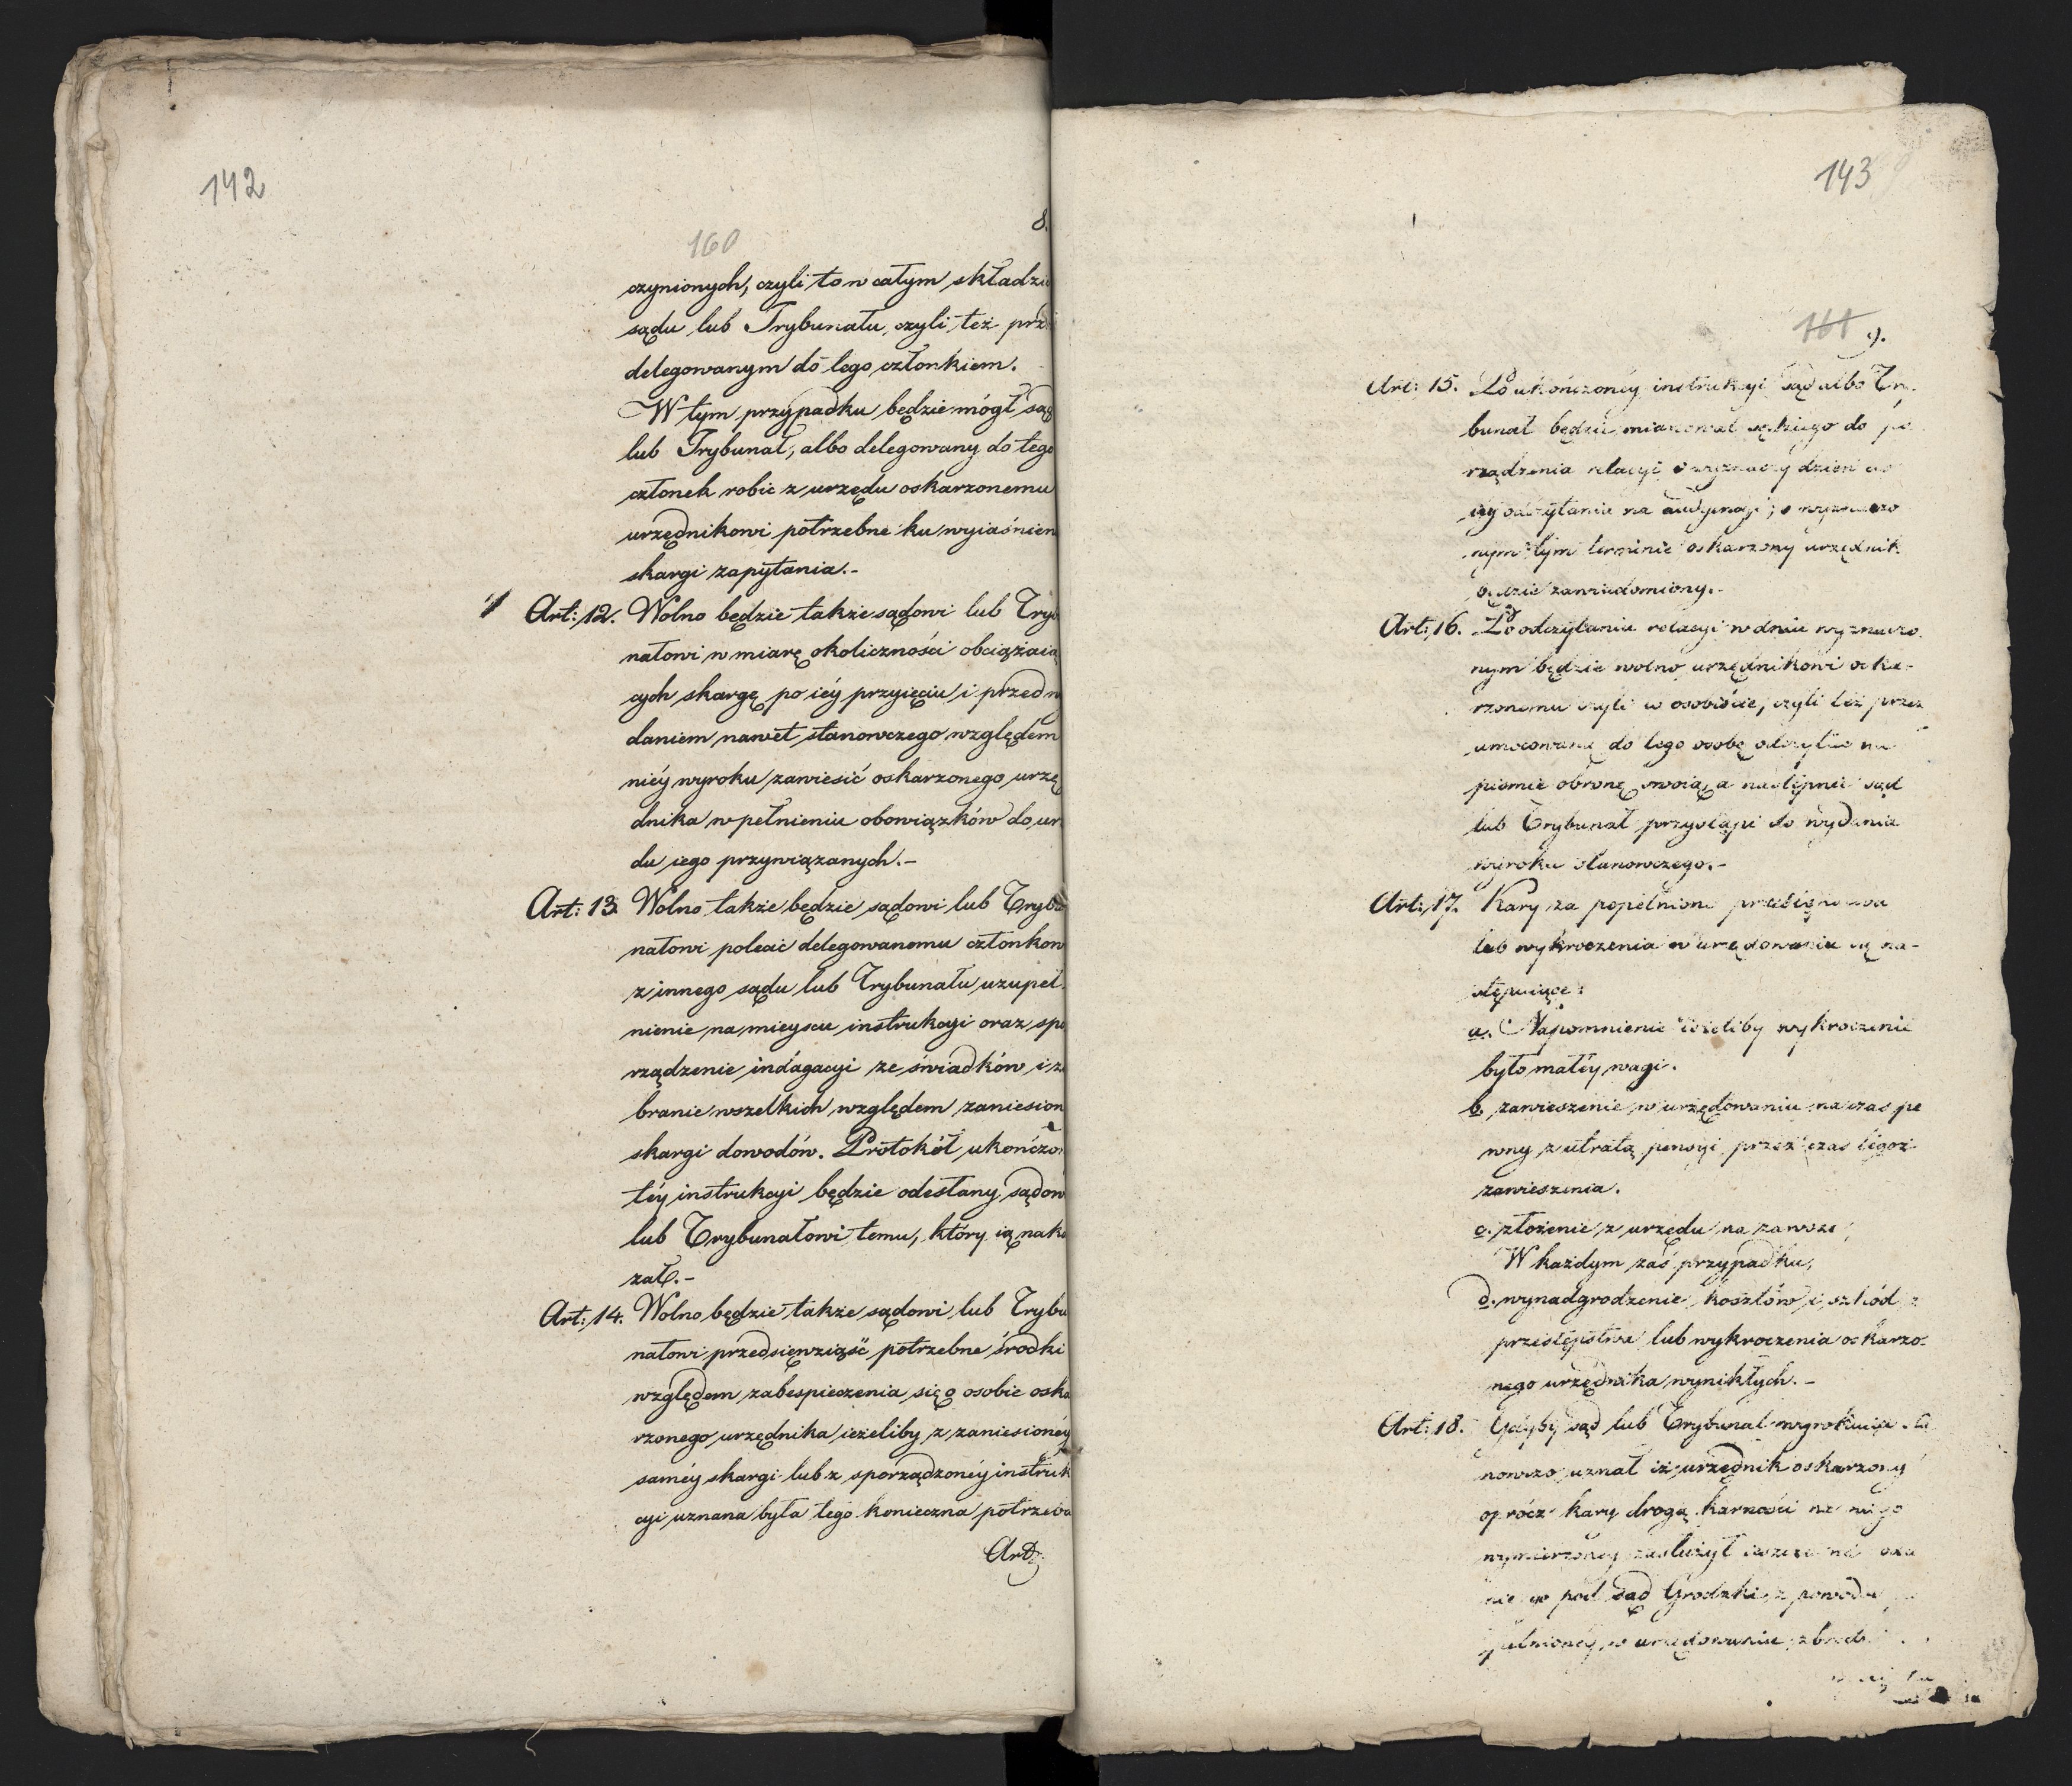 142
8.
160
czynionych, czyli to w całym składzie
sądu lub Trybunału, czyli też prz
delegowanym do tego członkiem.
W tym przypadku będzie mógł sąd
lub Trybunał, albo delegowany do tego
członek robić z urzędu oskarzonemu
urzędnikowi potrzebne ku wyiaśnien
skargi zapytania.-
Art: 12. Wolno będzie także sądowi lub Tryb
nałowi w miarę okoliczności obciążaią
cych skargę po iéy przyięciu i przed w
daniem nawet stanowczego względem
niéy wyroku zawiesić oskarzonego urzę
dnika w pełnieniu obowiązków do ur
du iego przywiązanych.-
Art: 13. Wolno także będzie sądowi lub Trybu
nałowi polecić delegowanemu członkow
z innego sądu lub Trybunału uzupeł.
nienie na mieyscu instrukcyi oraz spo
rządzenie indagacyi ze świadków i ze
branie wszelkich względem zaniesion
skargi dowodów. Protokół ukończon
téy instrukcyi będzie odesłany sądow
lub Trybunałowi temu, który ią naka
zał.-
Art: 14. Wolno będzie także sądowi lub Trybu
nałowi przedsięwziąść potrzebne środki
względem zabespieczenia się o osobie oska
rzonego urzędnika ieżeliby z zaniesionéy
saméy skargi lub z sporządzonéy instruk
cyi uznana była tego konieczna potrzeba
Art:
143
161 9.
Art: 15. Po ukończonéy instrukcyi Sąd albo Try.
bunał będzie mianował sędziego do
rządzenia relacyi i wyznaczy dzień
iéy odczytania na audyencyi; o wyznaczo
nym tym terminie oskarzony urzędnik
będzie zawiadomiony.-
Art: 16. Po odczytaniu relacyi w dniu wyznaczo.
nym będzie wolno urzędnikowi oska-
rzonemu czyli to osobiście, czyli też przez
umocowaną do tego osobę odczytać na
piśmie obronę swoią, a następnie sąd
lub Trybunał przystąpi do wydania
wyroku stanowczego.-
Art: 17. Kary za popełnione przestępstwa
lub wykroczenia w urzędowaniu są na-
stępuiące:
a. Napomnienie ieżeliby wykroczenie
było małéy wagi.
b. zawieszenie w urzędowaniu na czas pe
wny z utratą pensyi przez czas tegoż
zawieszenia.
c. złożenie z urzędu na zawsze;
W każdym zaś przypadku,
d. wynadgrodzenie kosztów i szkód z
przestępstwa lub wykroczenia oskarzo-
nego urzędnika wynikłych.-
Art: 18. Gdyby sąd lub Trybunał wyrokuiąc sta
nowczo uznał iż urzędnik oskarzony
oprócz kary drogą karności na niego
wymierzonéy zasłużył ieszcze na odda
nie go pod Sąd Grodzki z powodu
pełnionéy w urzędowaniu zbrod